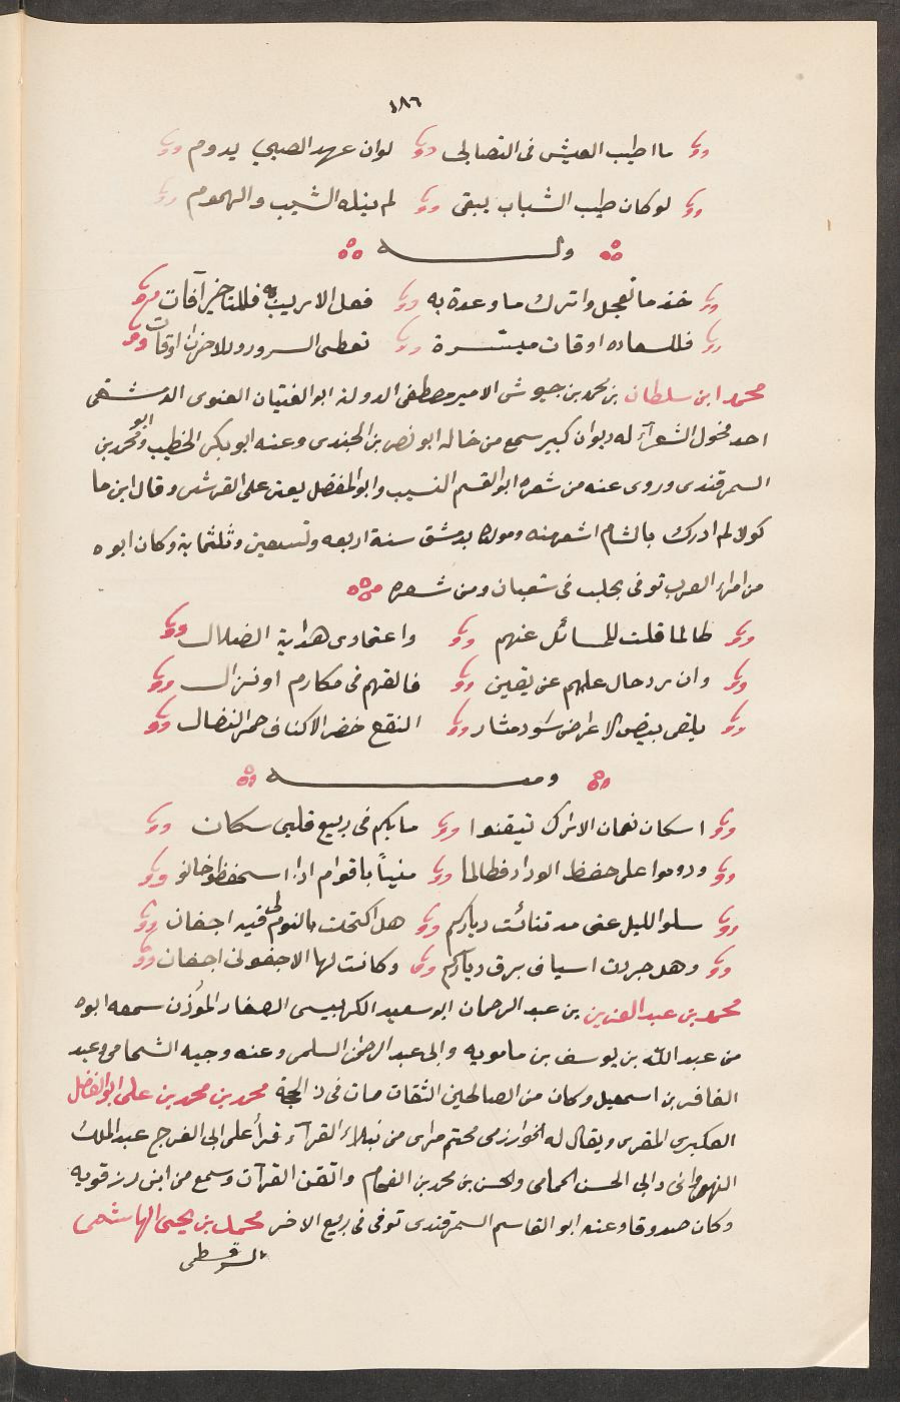 ١٨٦
ما اطيب العيش فى التصابى لوان عهد الصبى يدوم
لوكان طيب الشباب يبقى لم يتله الشيب والهموم
وله
خذ ما تعجل واترك ما وعدة به فعل الاريب فللتاخير آفات
فللسعاده اوقات ميسرة تعطى السرور وللاحزان اوقات
محمد ابن سلطان بن محمد بن حيوش الامير مصطفى الدولة ابو الفتيان الغنوى الدمشقى
احد فحول الشعرآء له ديوان كبير سمع من خاله ابو نصر بن الجندى وعنه ابو بكر الخطيب وابو محمد بن
السمرقندى وروى عنه من شعره ابو القسم النسيب وابو المفضل يعنى على القرشى وقال ابن ما
كولا لم ادرك بالشام اشعر منه ومولده بدمشق سنة اربعه وتسعين وثلثماية وكان ابوه
من امراء العرب توفى بحلب فى شعبان ومن شعره
طالما قلت للمسائل عنهم واعتمادى هداية الضلال
وان ترد حال علمهم عن يقين فالقهم فى مكارم او نزال
يلقى بيض الاعراض سود مثار النقع خضر الاكناف حمر النضال
ومنه
اسكان نعمان الاراك تيقنوا مابكم فى ربيع قلبى سكان
ودوموا على حفظ الوداد فطالما منيناً باقوام اذا استحفظوا خانو
سلو الليل عنى مد تنائت دياركم هل اكتحلت بالنوم لى فيه اجفان
وهل جردت اسياف برق دياركم وكانت لها الا جفونى اجفان
محمد بن عبد العزيز بن عبد الرحمان ابو سعيد الكرابيسى الصفار المؤذن سمعه ابوه
من عبد الله بن يوسف بن مامويه وابى عبد الرحمن السلمى وعنه وجيه الشحامى وعبد
الغافر بن اسمعيل وكان من الصالحين الثقات مات فى ذ الحجة محمد بن محمد بن على ابو الفضل
العكبرى المقرى ويقال له الخوارزمى من نبلاء القرآء قرأ على ابى الفرج عبد الملك
النهروانى وابى الحسن الحمامى والحسن بن محمد بن الفحام واتقن القرآت وسمع من ابن رزقويه
وكان صدوقا وعنه ابو القاسم السمرقندى توفى فى ربيع الاخر محمد بن يحيى الهاشمى
السرقسطى